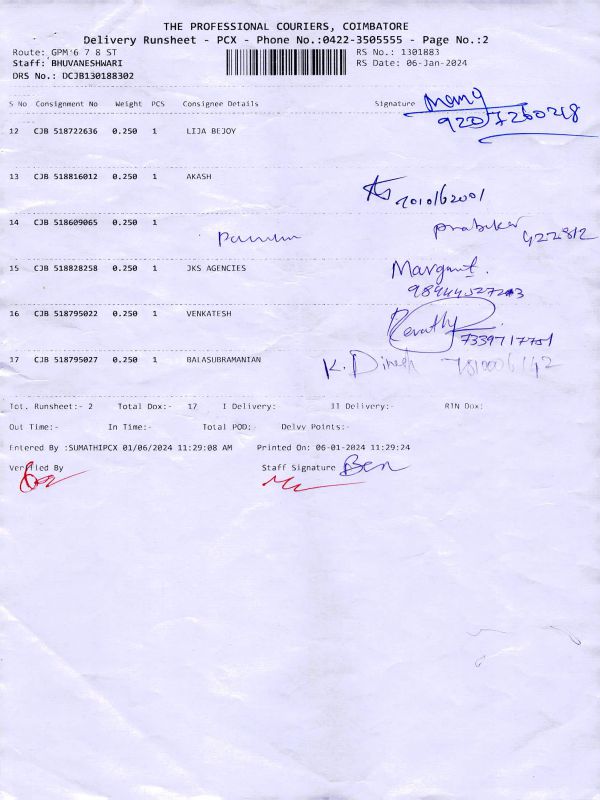 THE PROFESSIONAL COURIERS, COIMBATORE
Delivery Runsheet - PCX - Phone No.:0422-3505555 - Page No.:2
Route: GPM 6 7 8 ST
RS No.: 1301883
Staff: BHUVANESHWARI
RS Date: 06-Jan-2024
DRS No.: DCJB130188302
S No Consignment No Weight PCS Consignee Details Signature
12 CJB 518722636 0.250 1 LIJA BEJOY
13 CJB 518816012 0.250 1 AKASH
14 CJB 518609065 0.250 1
prabaker
15 CJB 518828258 0.250 1 JKS AGENCIES Margaret
16 CJB 518795022 0.250 1 VENKATESH Revathy
7339717751
17 CJB 518795027 0.250 1 BALASUBRAMANIAN K. Dinesh
Tot. Runsheet:- 2 Total Dox:- 17 I Delivery:- II Delivery:- RTN Dox:
Out Time:- In Time:- Total POD:- Delvy Points:-
Entered By :SUMATHIPCX 01/06/2024 11:29:08 AM Printed On: 06-01-2024 11:29:24
Verified By Staff Signature Ben